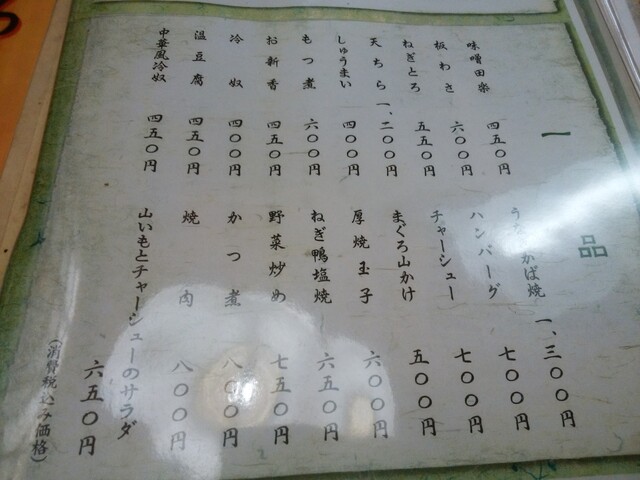 一品
味噌田楽 四五〇円
板わさ 六〇〇円
ねぎとろ 五五〇円
天ちら 一、二〇〇円
しゅうまい 四〇〇円
もつ煮 六〇〇円
お新香 四五〇円
冷奴 四〇〇円
温豆腐 四五〇円
中華風冷奴 四五〇円
かば焼 一、三〇〇円
ハンバーグ 七〇〇円
チャーシュー 七〇〇円
まぐろ山かけ 五〇〇円
厚焼玉子 六〇〇円
ねぎ鴨塩焼 六五〇円
野菜炒め 七五〇円
かつ煮 八〇〇円
焼肉 八〇〇円
山いもとチャーシューのサラダ 六五〇円
(消費税込み価格)